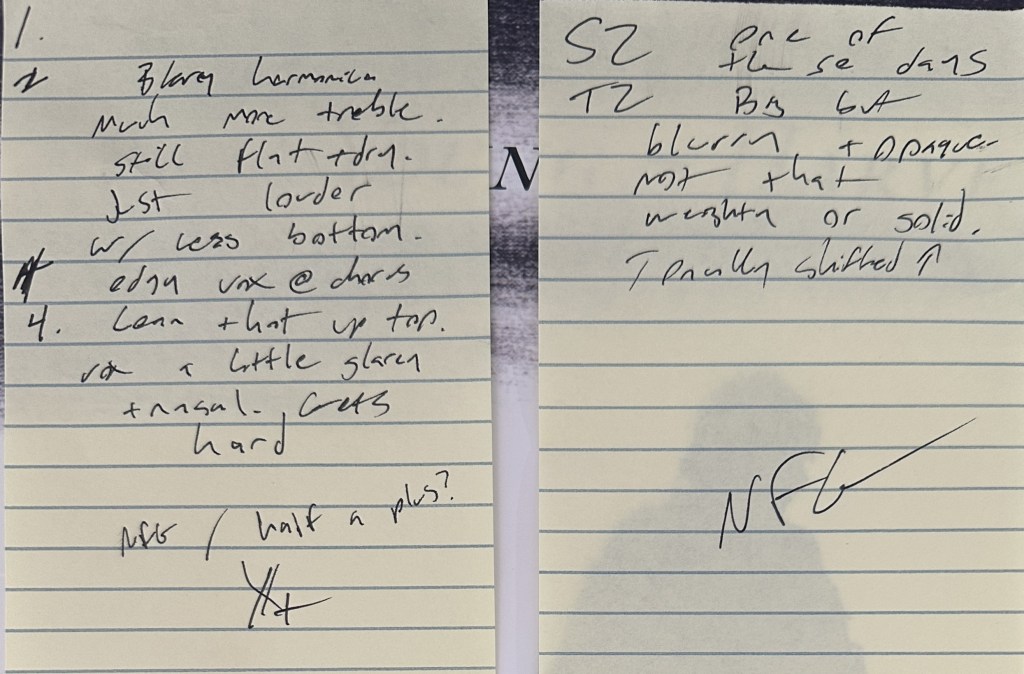 1.
2 Blarey harmonica
Much more treble.
still flat + dry.
Just louder
w/ less bottom.
edgy vox @ chorus
4. Lean + hot up top.
vox a little glarey
+ nasal. Gets
hard
NFG / half a plus?
N
S2 one of
these days
T2 Big but
blurry + opaque
not that
weighty or solid.
Tonally shifted ↑
NFG